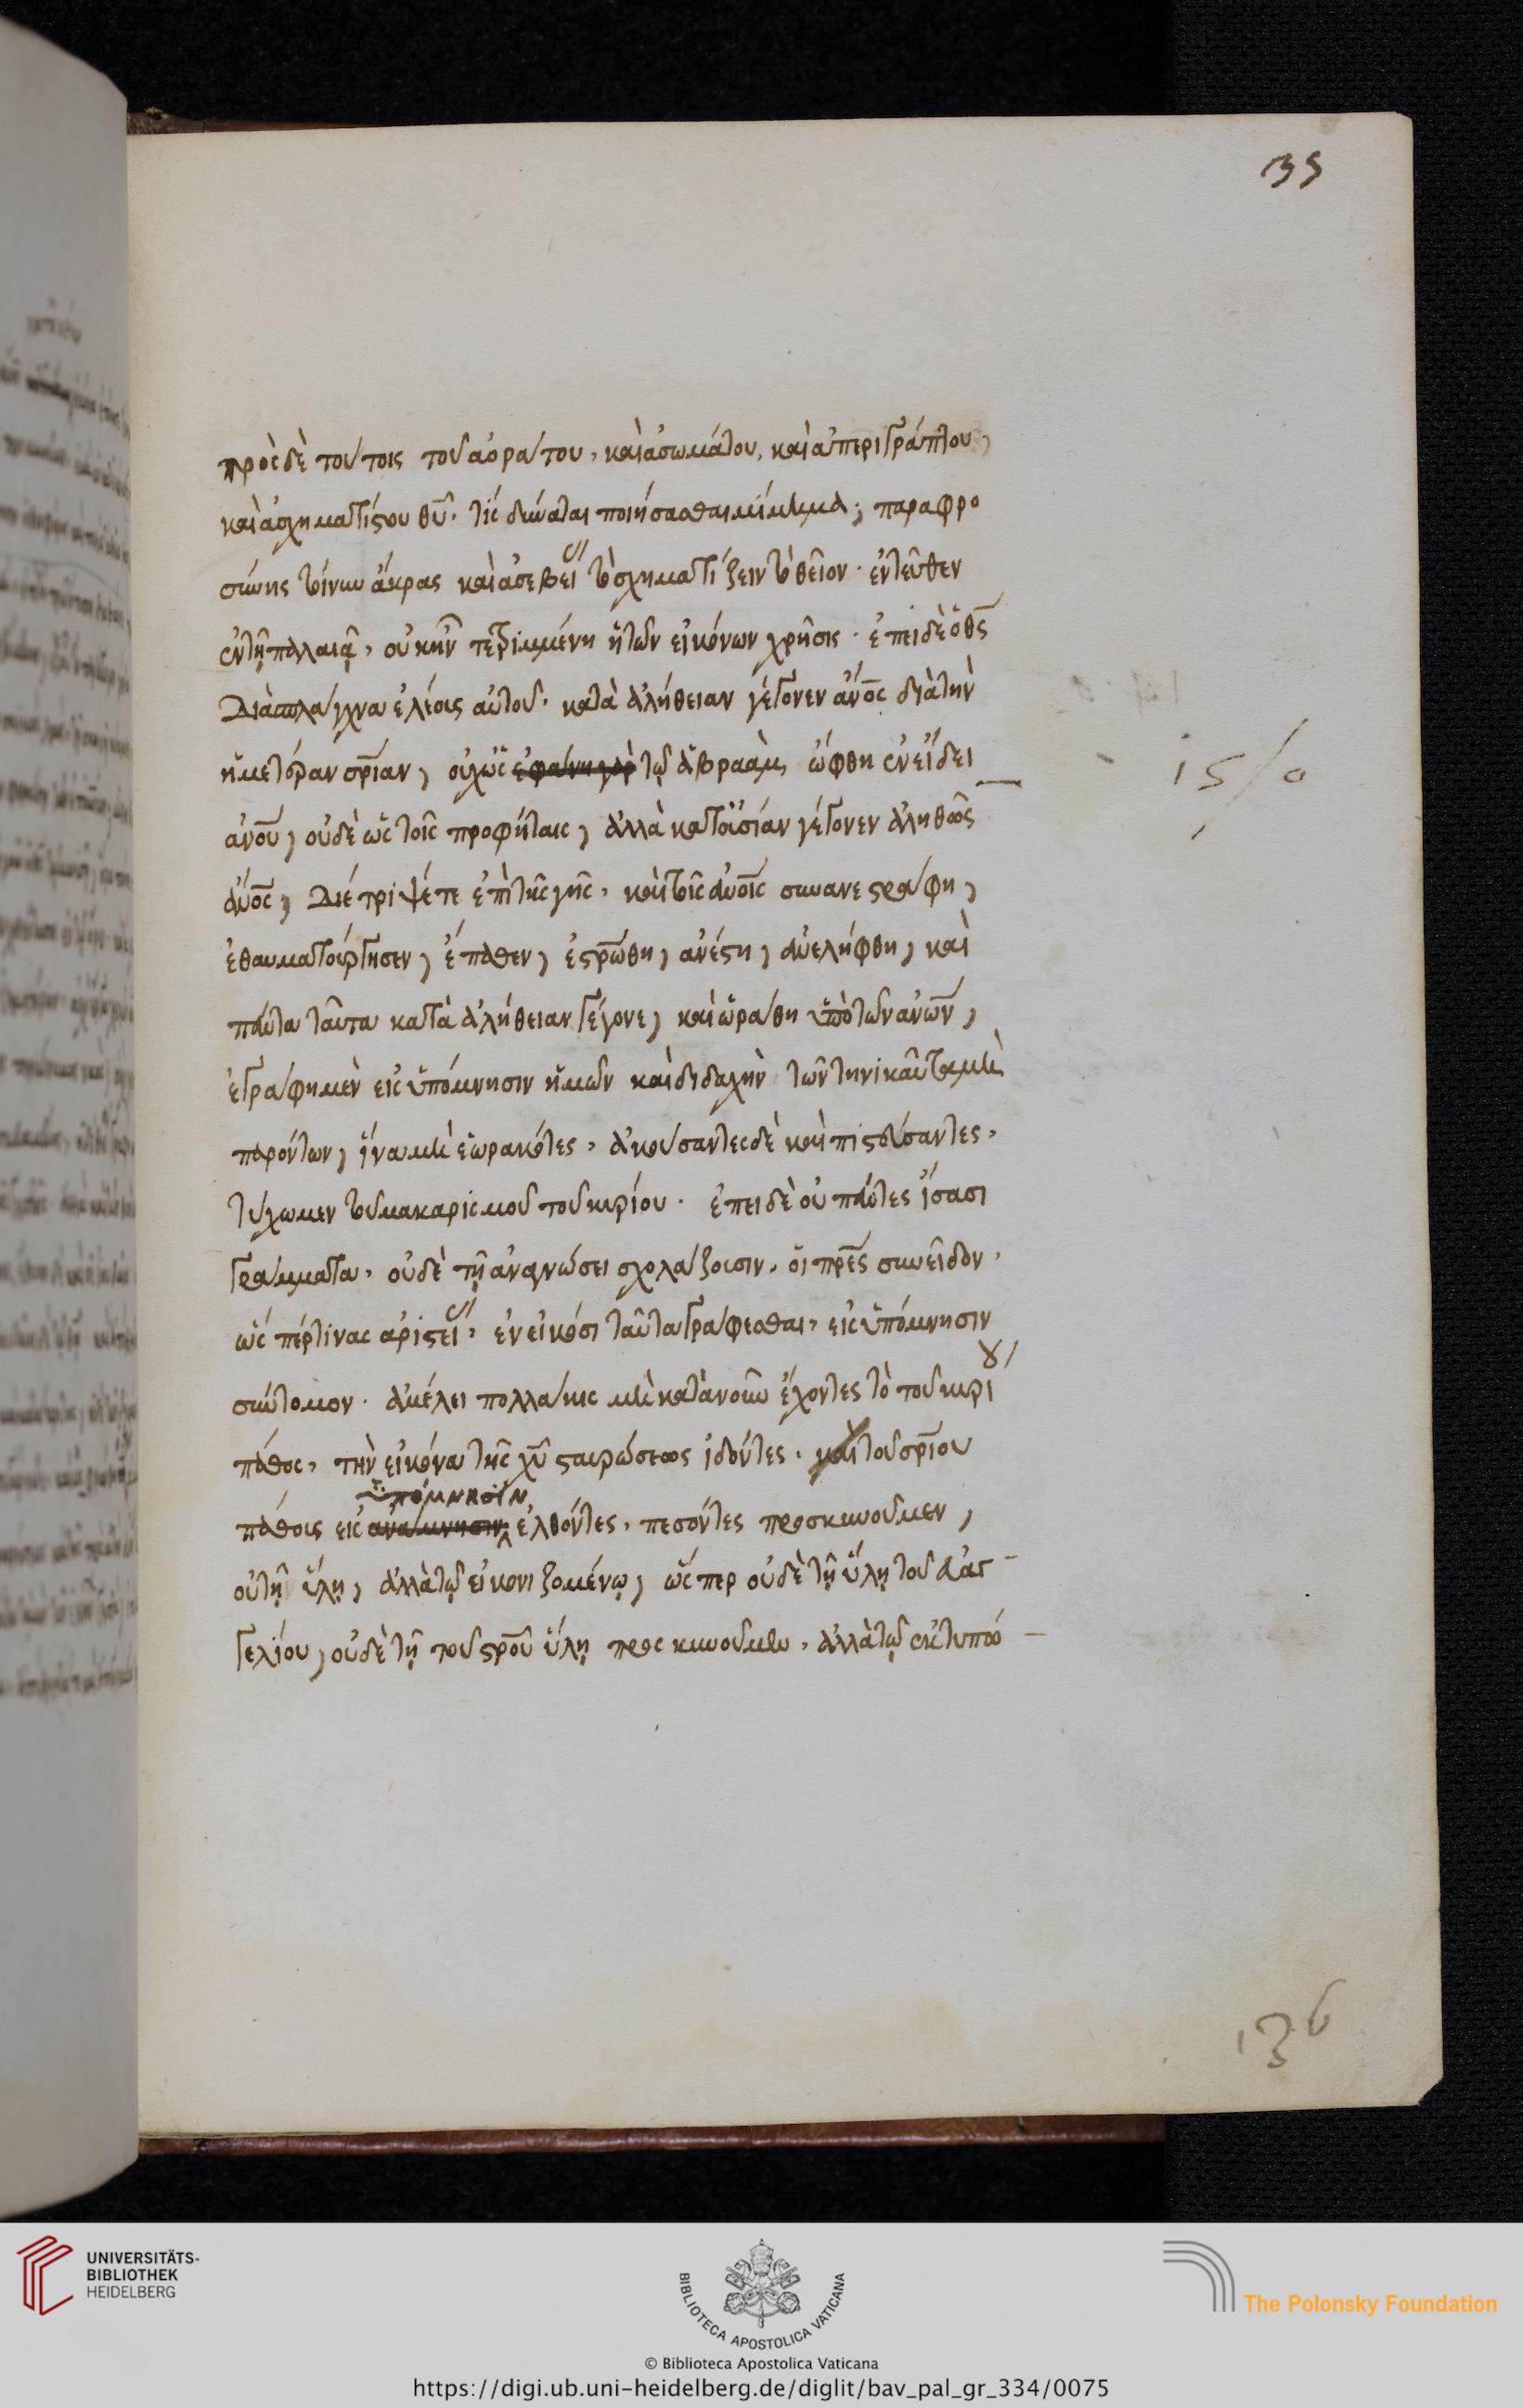 135
πρὸς δὲ τούτοις τοῦ ἀοράτου, καὶ ἀσωμάτου, καὶ ἀπεριγράπτου,
καὶ ἀσχηματίστου θυ̅. τίς δύναται ποιήσασθαι μίμημα; παραφρο
σύνης τοίνυν ἄκρας καὶ ἀσεβεί ς τὸ σχηματίζειν τὸ θεῖον. ἐντεῦθεν
ἐν τῇ παλαιᾷ, οὐκ ἦν τετριμμένη ἡ τῶν εἰκόνων χρῆσις. ἐπεὶ δὲ ὁ θς̅
διὰ σπλάγχνα ἐλέους αὐτοῦ. κατὰ ἀλήθειαν γέγονεν ἄνος̅ διὰ τὴν
ἡμετέραν σρίαν̅, οὐχ ὡς ἐφάνη γὰρ τῷ ἀβραὰμ ὤφθη ἐν εἴδει
ἀνου̅, οὐδὲ ὡς τοῖς προφήταις, ἀλλὰ κατ' οὐσίαν γέγονεν ἀληθῶς
ἄνος̅, διέτριψέ τε ἐπὶ τῆς γῆς, καὶ τοῖς ἀνοις̅ συνανεστράφη,
ἐθαυματούργησεν, ἔπαθεν, ἐστρώθη̅, ἀνέστη, ἀνελήφθη, καὶ
πάντα ταῦτα κατὰ ἀλήθειαν γέγονε, καὶ ὡράθη ὑπὸ τῶν ἀνων̅,
ἐγράφη μὲν εἰς ὑπόμνησιν ἡμῶν καὶ διδαχὴν τῶν τηνικαῦτα μὴ
παρόντων, ἵνα μὴ ἑωρακότες, ἀκούσαντες δὲ καὶ πιστεύσαντες,
τύχωμεν τοῦ μακαρισμοῦ τοῦ κυρίου. ἐπεὶ δὲ οὐ πάντες ἴσασι
γράμματα, οὐδὲ τῇ ἀναγνώσει σχολάζουσιν, οἱ πρες̅ συνεῖδον,
ὥσπερ τινὰς ἀριστεί ς, ἐν εἰκόσι ταῦτα γράφεσθαι, εἰς ὑπόμνησιν
σύντομον. ἀμέλει πολλάκις μὴ κατὰ νοῦν ἔχοντες τὸ τοῦ κυρί ου
πάθος, τὴν εἰκόνα τῆς χυ̅ σταυρώσεως ἰδόντες, καὶ τοῦ σρίου̅
ὑπόμνησιν
πάθους εἰς ἀνάμνησιν ἐλθόντες, πεσόντες προσκυνοῦμεν,
οὐ τῇ ὕλῃ, ἀλλὰ τῷ εἰκονιζομένῳ, ὥσπερ οὐδὲ τῇ ὕλῃ τοῦ εὐαγ-
γελίου, οὐδὲ τῇ τοῦ στρου̅ ὕλῃ προσκυνοῦμεν, ἀλλὰ τῷ ἐκτυπώ-
15/0
136
UNIVERSITÄTS-
BIBLIOTHEK
HEIDELBERG
BIBLIOTECA APOSTOLICA VATICANA
The Polonsky Foundation
© Biblioteca Apostolica Vaticana
https://digi.ub.uni-heidelberg.de/diglit/bav_pal_gr_334/0075